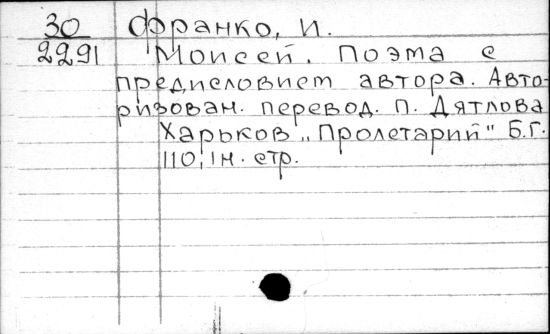 30 Франко, И.
2291 Моисей. Поэма с
предисловием автора. Авто-
ризован. перевод. П. Дятлова
Харьков „Пролетарий" Б.Г.
110, 1н. стр.